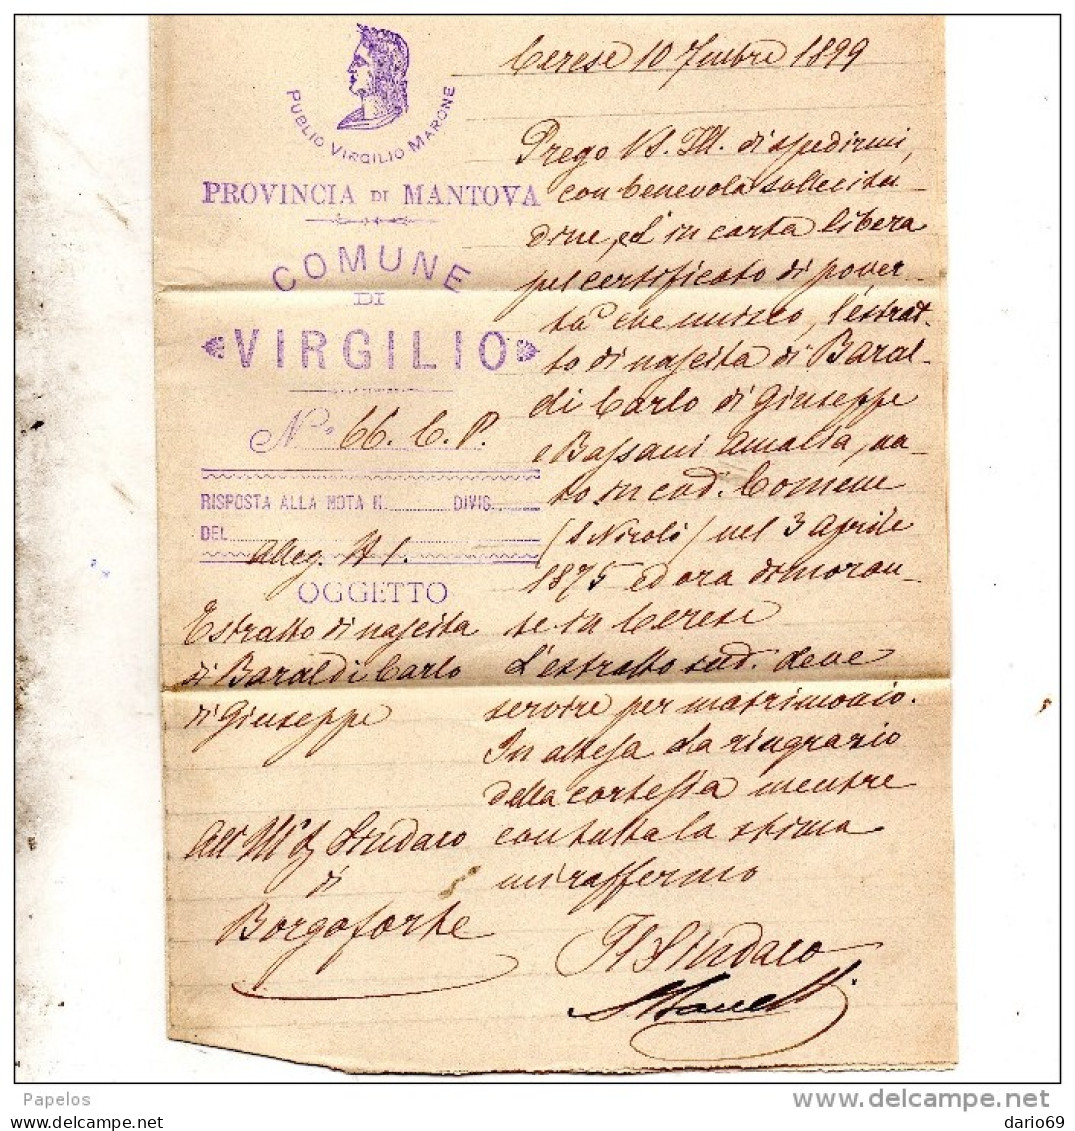 PUBLIO VIRGILIO MARONE
PROVINCIA DI MANTOVA
COMUNE
DI
VIRGILIO
No. 66. C. P.
RISPOSTA ALLA NOTA N. DIVIS.
DEL
Alleg. N 1.
OGGETTO
Estratto di nascita
di Baraldi Carlo
di Giuseppe
All' Ill. Sindaco
di
Borgoforte
Cerese 10 7mbre 1899
Prego V. S. Ill. di spedirmi,
con benevola sollecitu
dine, ed in carta libera
pel certificato di pover
tà che unisco, l'estrat
to di nascita di Baral
di Carlo di Giuseppe
e Bassani Amalia, na
to in cod. Comune
(S Nicolò) nel 3 Aprile
1875 ed ora dimoran
te in Cerese
L'estratto sud. deve
servire per matrimonio.
In attesa La ringrazio
della cortesia mentre
con tutta la stima
mi raffermo
Il Sindaco
Papelos
delcampe.net
dario69